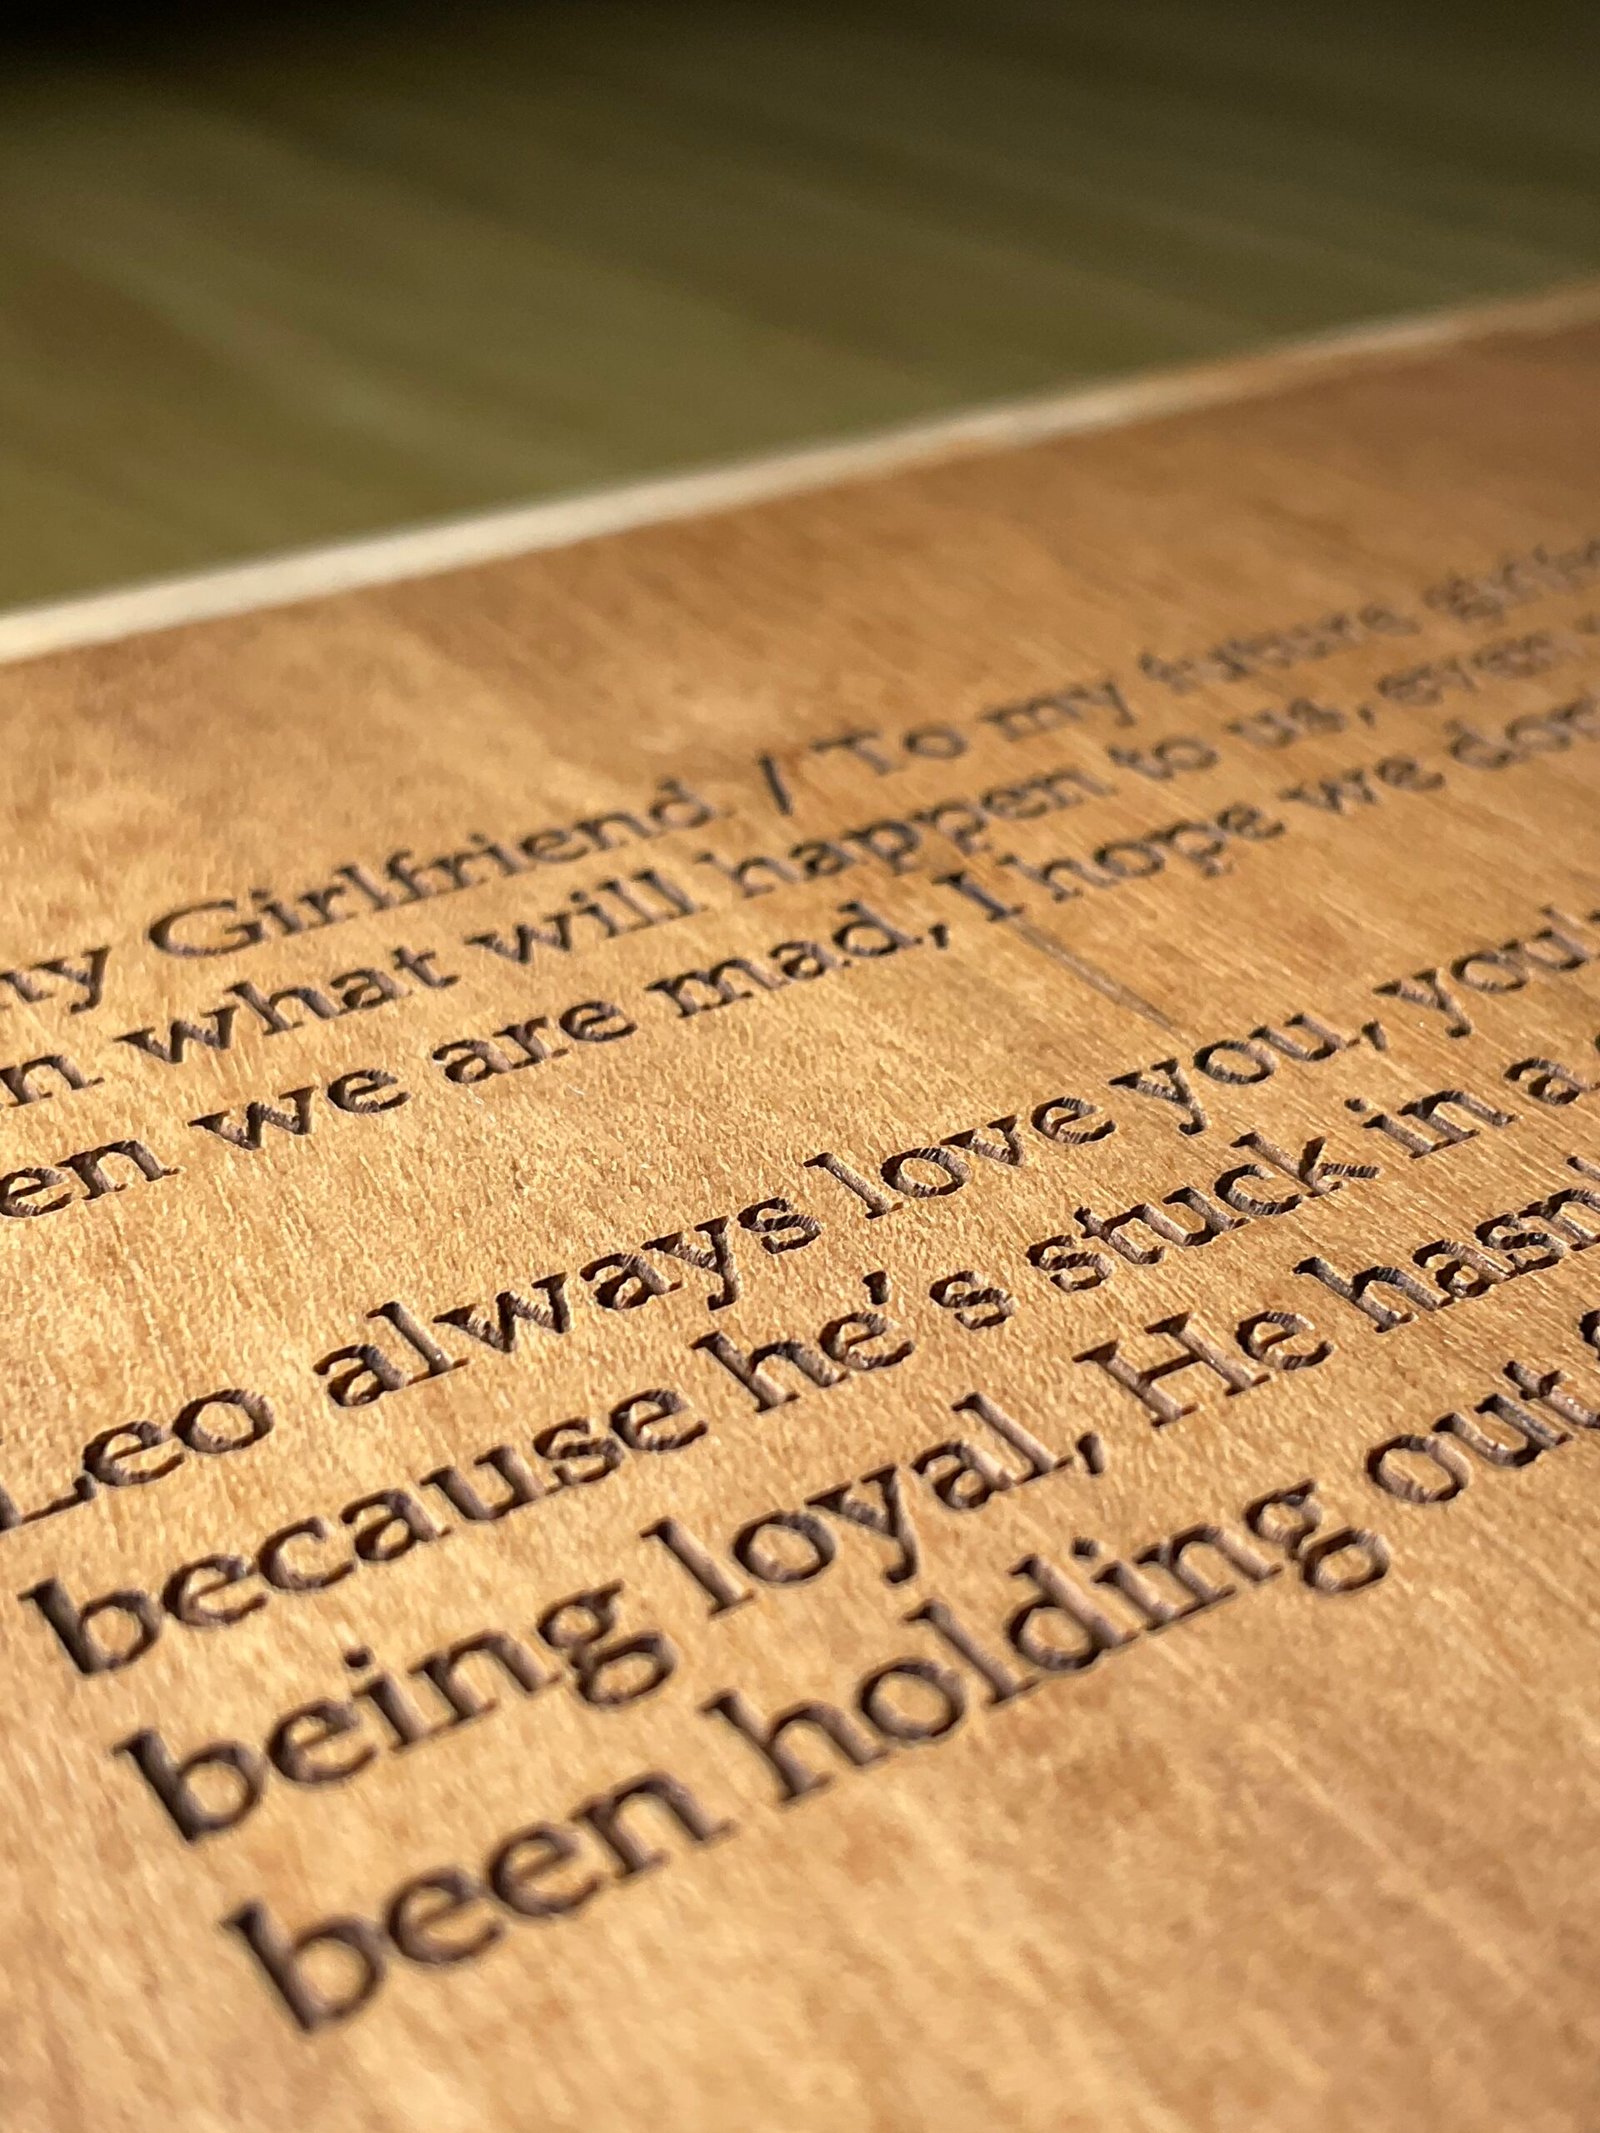 Girlfriend / To my future
what will happen to us, even
we are mad, I hope we
Leo always love you,
because he's stuck in a
being loyal, He
been holding out